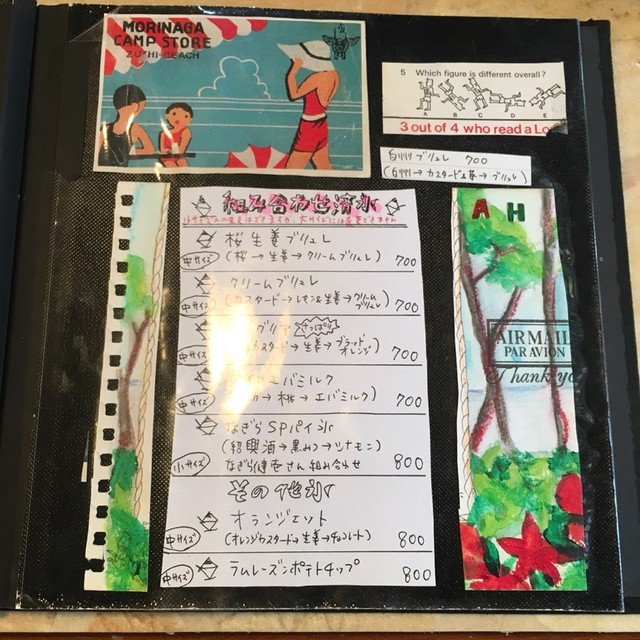 MORINAGA
CAMP STORE
ZUSHI-BEACH
5 Which figure is different overall?
A B C D E
3 out of 4 who read a Lo
ブリュレ 700
カスタード
ブリュレ
組み合わせ済氷
桜生姜ブリュレ
中サイズ
(桜→生姜→クリームブリュレ) 700
クリームブリュレ
中サイズ
(カスタード→レモン&生姜→クリームブリュレ) 700
さっぱり
中サイズ
カスタード→生姜→ブラッドオレンジ) 700
エバミルク
中サイズ
→桃→エバミルク) 700
なぎらSPパイン氷
(紹興酒→黒みつ→シナモン)
小サイズ
なぎら健壱さん組み合せ 800
その他氷
オランジェット
中サイズ
(オレンジカスタード→生姜→チョコレート) 800
中サイズ
ラムレーズンポテトチップ 800
A H
AIRMAIL
PAR AVION
Thank yo